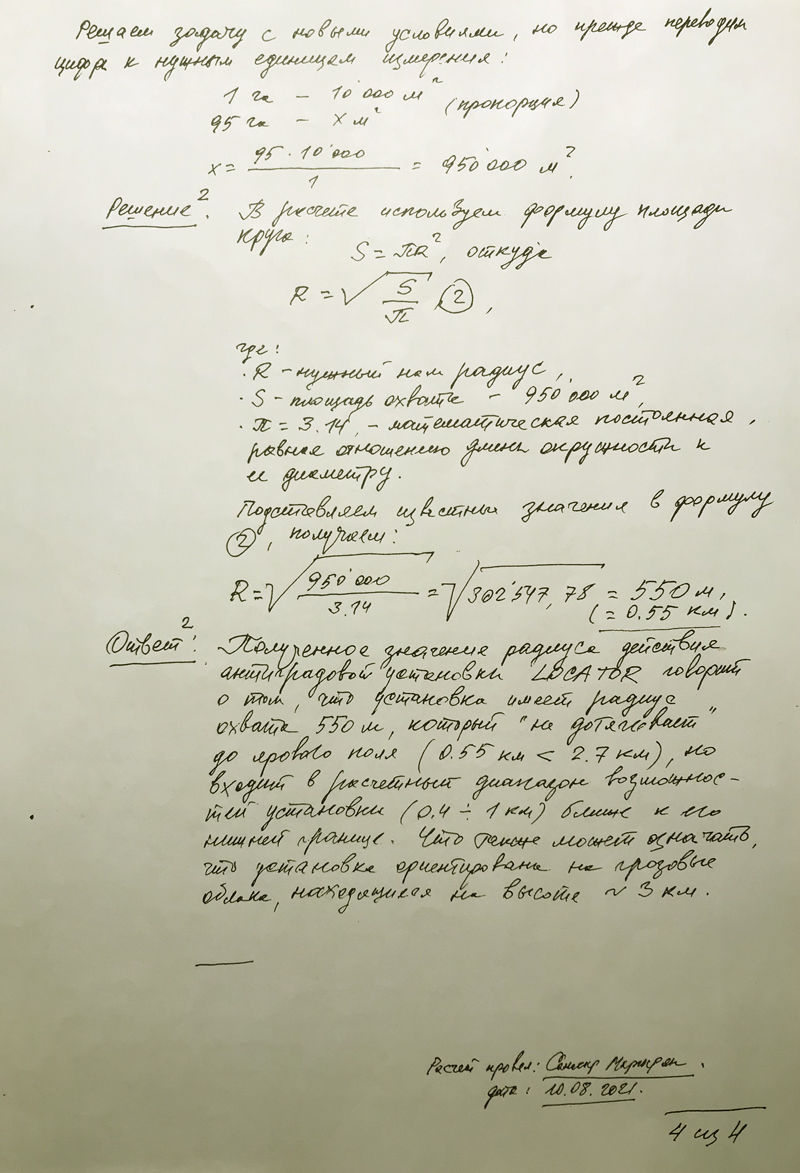 Решаем задачу с новыми условиями, но прежде переводим
цифра к нужным единицам измерения:
1 га – 10'000 м² (пропорция)
95 га – x м²
x = 95 · 10'000 / 1 = 950'000 м².
Решение². В расчете используем формулу площади
круга:
S = ПR², откуда
R = √S/П (2),
где:
· R – нужный нам радиус,
· S – площадь охвата – 950'000 м²,
· П = 3.14, – математическая постоянная,
равная отношению длины окружности к
ее диаметру.
Подставляем известные значения в формулу
(2), получаем:
R = √950'000/3.14 = √302'547,78 = 550 м,
(= 0.55 км).
Ответ²: Полученное значение радиуса действия
антиградовой установки LOCATOR говорит
о том, что установка имеет радиус
охвата 550 м, который "не дотягивает"
до ярового поля (0.55 км < 2.7 км), но
входит в расчетный диапазон возможнос-
тей установки (0.4 ÷ 1 км) ближе к его
нижней границе. Что также может означать,
что установка ориентирована на грозовые
облака, находящиеся на высоте ~ 3 км.
Расчет провел:
дата: 10.08.2021.
4 из 4